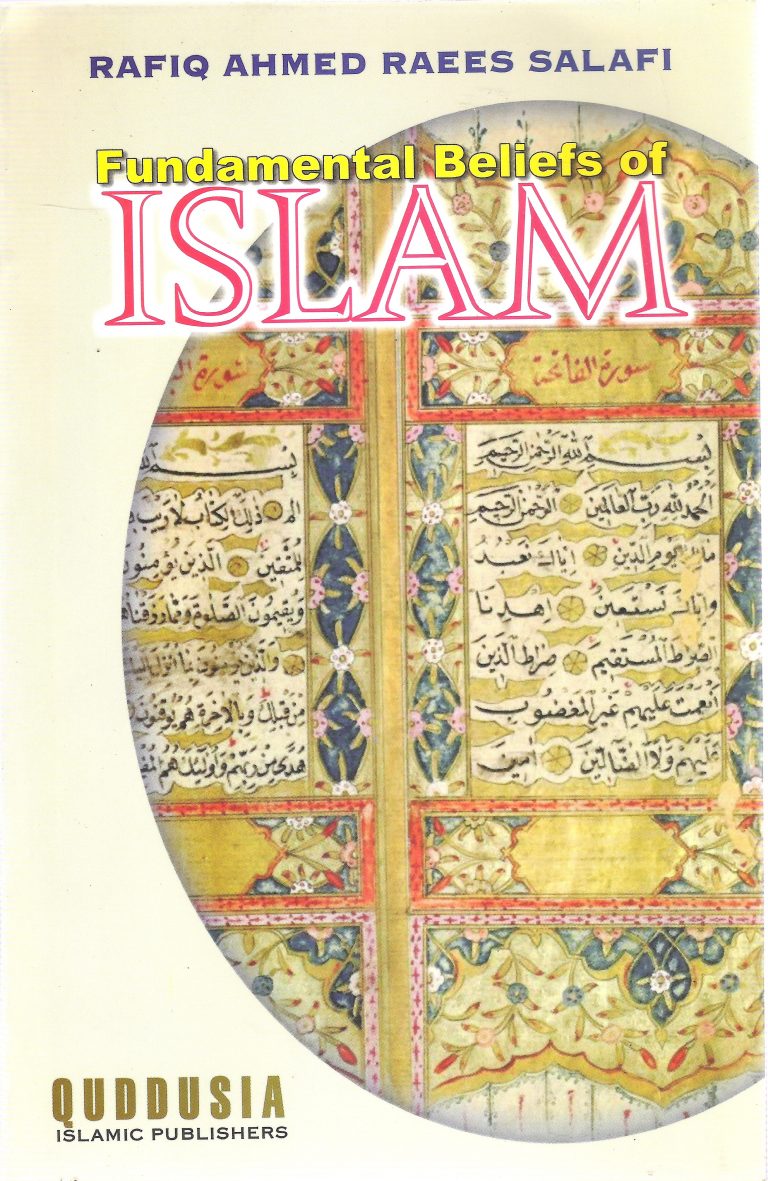 RAFIQ AHMED RAEES SALAFI
Fundamental Beliefs of
ISLAM
سورة الفاتحة
بسم الله الرحمن الرحيم
الحمد لله رب العالمين الرحمن الرحيم
مالك يوم الدين اياك نعبد
واياك نستعين اهدنا
الصراط المستقيم صراط الذين
أنعمت عليهم غير المغضوب
عليهم ولا الضالين امين
سورة
بسم الله
الم ذلك الكتاب لا ريب
للمتقين الذين يؤمنون
ويقيمون الصلوة ومما رزقناه
والذين يؤمنون بما انزل
من قبلك وبالاخرة هم يوقنون
هدى من ربهم واولئك هم
QUDDUSIA
ISLAMIC PUBLISHERS